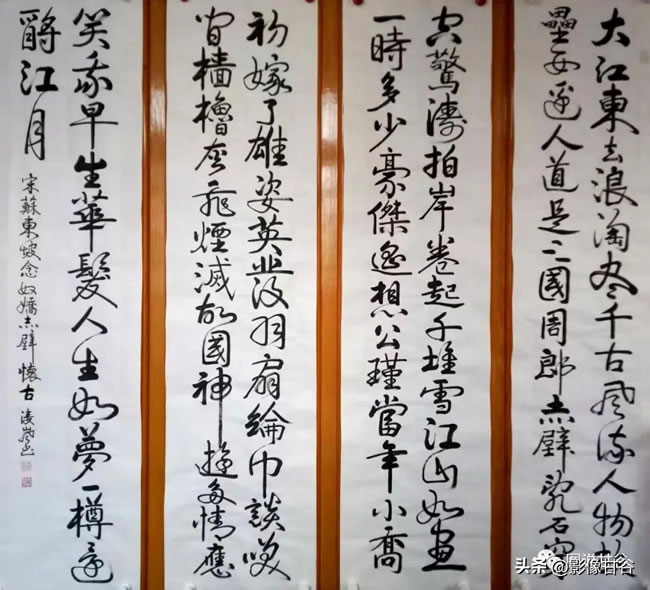 大江東去浪淘盡千古風流人物故
壘西邊人道是三國周郎赤壁亂石穿
空驚濤拍岸卷起千堆雪江山如畫
一時多少豪傑遙想公瑾當年小喬
初嫁了雄姿英發羽扇綸巾談笑
間檣櫓灰飛煙滅故國神遊多情應
笑我早生華髮人生如夢一樽還
酹江月
宋蘇東坡念奴嬌赤壁懷古
头条@影像甘谷